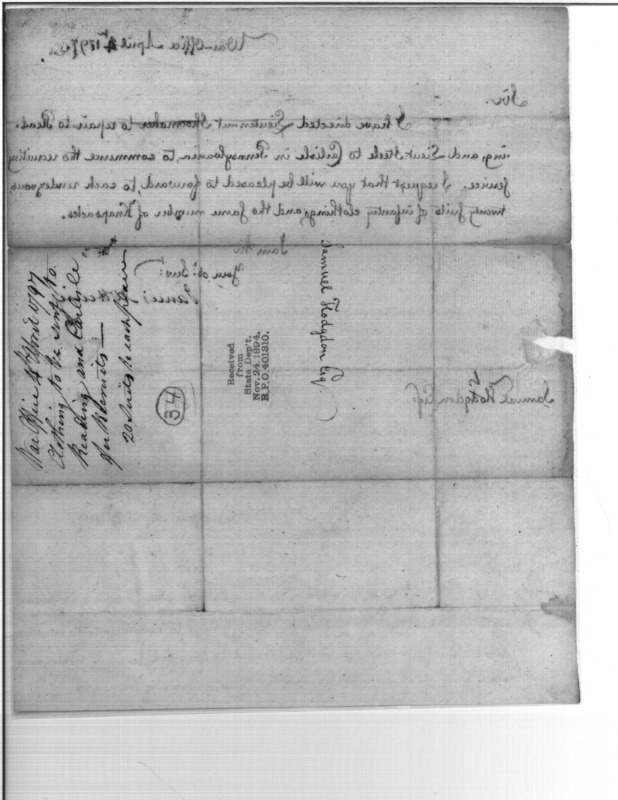 War Office April 4th 1797
Sir,
I have directed Lieutenant Shoemaker to repair to Read-
ing, and Lieut. Steele to Carlisle in Pennsylvania, to commence the recruiting
service. I request that you will be pleased to forward, to each rendezvous
twenty suits of infantry clothing, and the same number of Knapsacks.
I am Sir
Your ob. Serv:
James
Samuel Hodgdon Esq.
War Office 4th April 1797
Clothing to be sent to
Reading and Carlisle
for Recruits —
20 Suits to each place
34
Received
from
State Dep't.
Nov. 24. 1894.
R.P.O. 401310.
Samuel Hodgdon Esq